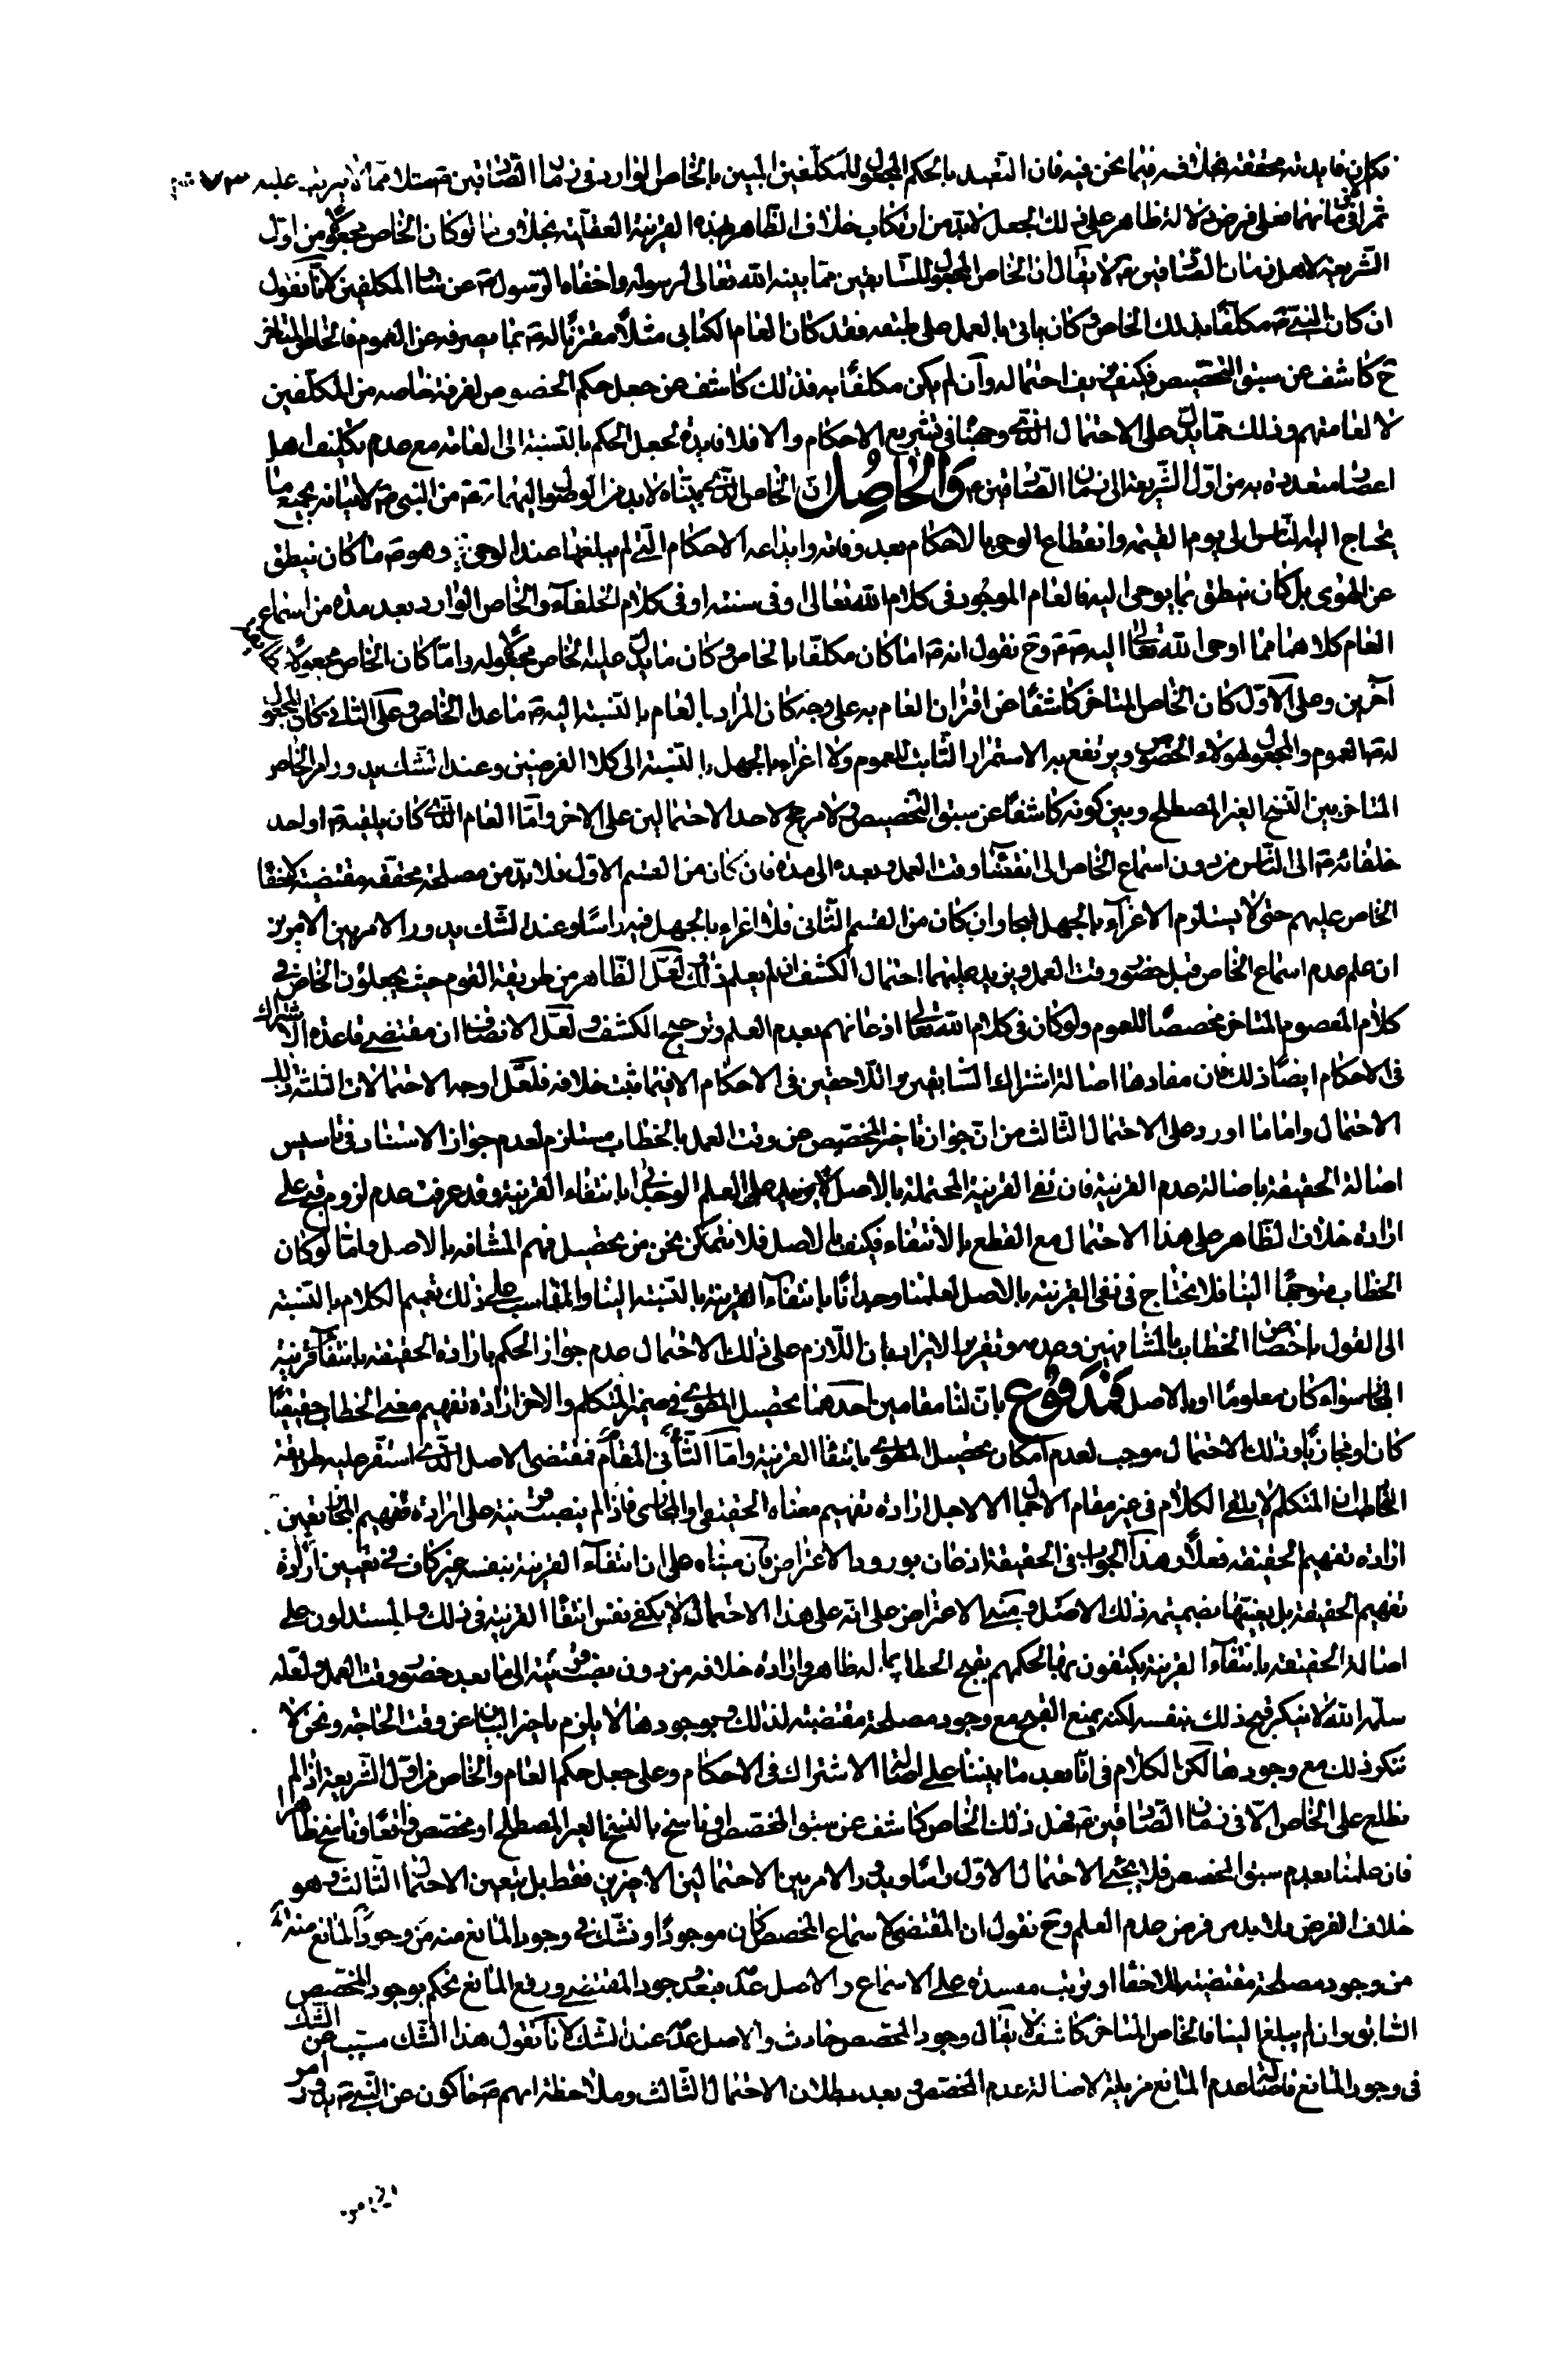 فكان فايدته محققة بخلافه فيما نحن فيه فان التعبد بالحكم المجعول للمكلفين المبين بالخاص الوارد في زمان الصادقين ع مثلا مما لا يترتب عليه ٧٣
ثمر في زمانهما فعلى فرض دلالة ظاهر على ذلك الجعل لا بد من ارتكاب خلاف الظاهر بهذه القرينة العقلية بخلاف ما لو كان الخاص مجعولا من اول
الشريعة لاهل زمان الصادقين ع لا يقال ان الخاص المجعول للسابقين مما بينه الله تعالى لرسوله واخفاه الرسول ص عن ساير المكلفين لانا نقول
ان كان النبي ص مكلفا بذلك الخاص وكان ياتي بالعمل على طبقه فقد كان العام الكتابي مثلا مقترنا له ص بما يصرفه عن العموم فالخاص المتاخر
ح كاشف عن سبق التخصيص فكيف ينفي احتماله وان لم يكن مكلفا به فذلك كاشف عن جعل حكم الخصوص لفرقة خاصة من المكلفين
لا لعامتهم وذلك مما يدل على الاحتمال الذي وجهنا في تشريع الاحكام والا فلا فايدة لجعل الحكم بالنسبة الى العامة مع عدم تكليف اهل
اعصار متعددة به من اول الشريعة الى زمان الصادقين ع والحاصل ان الخاص الذي بيناه لا بد من الوصول اليهما ع من النبي ص لاتيانه بجميع ما
يحتاج اليه الناس الى يوم القيمة وانقطاع الوحي بالاحكام بعد وفاته وايداعه الاحكام التي لم يبلغها عند الوصي وهو ص ما كان ينطق
عن الهوى بل كان ينطق بما يوحى اليه فالعام الموجود في كلام الله تعالى او في سنته او في كلام الخلفاء والخاص الوارد بعد مدة من استماع
العام كلاهما مما اوحى الله تعالى اليه ص وح نقول انه ص اما كان مكلفا بالخاص وكان ما يدل عليه الخاص مجعولا له واما كان الخاص مجعولا
آخرين وعلى الاول كان الخاص المتاخر كاشفا عن اقتران العام به على وجه كان المراد بالعام بالنسبة اليه ص ما عدا الخاص وعلى الثاني كان المجعول
له ص العموم والمجعول لهؤلاء الخصوص ويرتفع به الاستمرار الثابت للعموم ولا اغراء بالجهل بالنسبة الى كلا الفرضين وعند الشك يدور امر الخاص
المتاخر بين النسخ الغير المصطلح وبين كونه كاشفا عن سبق التخصيص ولا مرجح لاحد الاحتمالين على الاخر واما العام الذي كان يلقيه ص او احد
خلفائه ص الى الناس من دون استماع الخاص الى انقضاء وقت العمل وبعده الى مدة فان كان من القسم الاول فلا بد من مصلحة محققة مقتضية لاخفاء
الخاص عليهم حتى لا يستلزم الاغراء بالجهل قبحا وان كان من القسم الثاني فلا اغراء بالجهل فيه راسا وعند الشك يدور الامر بين الامرين
ان علم عدم استماع الخاص قبل حضور وقت العمل ويزيد عليهما احتمال الكشف ان لم يعلم ذلك ولعل الظاهر من طريقة القوم حيث يجعلون الخاص في
كلام المعصوم المتاخر مخصصا للعموم ولو كان في كلام الله تعالى اذعانهم بعدم العلم وترجيح الكشف ولعل الانصاف ان مقتضى قاعدة الاشتراك
في الاحكام ايضا ذلك فان مفادها اصالة اشتراك السابقين واللاحقين في الاحكام الا فيما ثبت خلافه فلعل اوجه الاحتمالات الثلثة ذلك
الاحتمال واما ما اورد على الاحتمال الثالث من ان جواز تاخير المخصص عن وقت العمل بالخطاب مستلزم لعدم جواز الاستناد في تاسيس
اصالة الحقيقة باصالة عدم القرينة فان نفي القرينة المحتملة بالاصل لا يزيد على العلم الوجداني بانتفاء القرينة وقد عرفت عدم لزوم قبح على
ارادة خلاف الظاهر على هذا الاحتمال مع القطع بالانتفاء فكيف بالاصل فلا نتمكن نحن من تحصيل فهم المشافه بالاصل واما لو كان
الخطاب متوجها الينا فلا نحتاج في نفي القرينة بالاصل لعلمنا وجدانا بانتفاء القرينة بالنسبة الينا والمناسب على ذلك تعميم الكلام بالنسبة
الى القول باختصاص الخطاب بالمشافهين وعدمه وتقرير الايراد بان اللازم على ذلك الاحتمال عدم جواز الحكم بارادة الحقيقة بانتفاء قرينة
المجاز سواء كان معلوما او بالاصل فمدفوع بان لنا مقامين احدهما تحصيل المطوي في ضمير المتكلم والاخر ارادة تفهيم معنى الخطاب حقيقيا
كان او مجازيا وذلك الاحتمال موجب لعدم امكان تحصيل المطوي بانتفاء القرينة واما الثاني في المقام فمقتضى الاصل الذي استقر عليه طريقة
التخاطب ان المتكلم لا يلقي الكلام في غير مقام الاجمال الا لاجل ارادة تفهيم معناه الحقيقي او المجازي فاذا لم ينصب قرينة على ارادة تفهيم المجاز تعين
ارادة تفهيم الحقيقة فعلا وهذا الجواب في الحقيقة اذعان بورود الاعتراض فان مبناه على ان انتفاء القرينة بنفسه غير كاف في تعيين ارادة
تفهيم الحقيقة بل يعينها بضميمة ذلك الاصل ومبنى الاعتراض على انه على هذا الاحتمال لا يكفي نفس انتفاء القرينة في ذلك والمستدلون على
اصالة الحقيقة بانتفاء القرينة يكتفون بها لحكمهم بقبح الخطاب بما له ظاهر وارادة خلافه من دون نصب قرينة الى ما بعد حضور وقت العمل ولعله
سلمه الله لا ينكر قبح ذلك بنفسه لكنه يمنع القبح مع وجود مصلحة مقتضية لذلك وبوجودها لا يلزم تاخير البيان عن وقت الحاجة ونحن لا
ننكر ذلك مع وجودها لكن الكلام في انا بعد ما بنينا على اصالة الاشتراك في الاحكام وعلى جعل حكم العام والخاص من اول الشريعة اذا لم
نطلع على الخاص الا في زمان الصادقين ع فهل ذلك الخاص كاشف عن سبق المخصص او ناسخ بالنسخ الغير المصطلح او مخصص واقعا وناسخ ظاهرا
فان علمنا بعدم سبق المخصص فلا يجئ الاحتمال الاول راسا ويدور الامر بين الاحتمالين الاخيرين فقط بل يتعين الاحتمال الثالث وهو
خلاف الفرض فلا بد من فرض عدم العلم وح نقول ان المقتضي لاستماع المخصص كان موجودا ونشك في وجود المانع منه من وجود المانع منه
من وجود مصلحة مقتضية للاخفاء او ترتب مفسدة على الاستماع والاصل عدمه فبعد وجود المقتضي ورفع المانع نحكم بوجود المخصص
السابق وان لم يبلغ الينا فالخاص المتاخر كاشف لا يقال وجود المخصص حادث والاصل عدمه عند الشك لانا نقول هذا الشك مسبب عن الشك
في وجود المانع فاصالة عدم المانع مزيلة لاصالة عدم المخصص بعد بطلان الاحتمال الثالث وملاحظة انهم ع حاكون عن النبي ص يدور امر